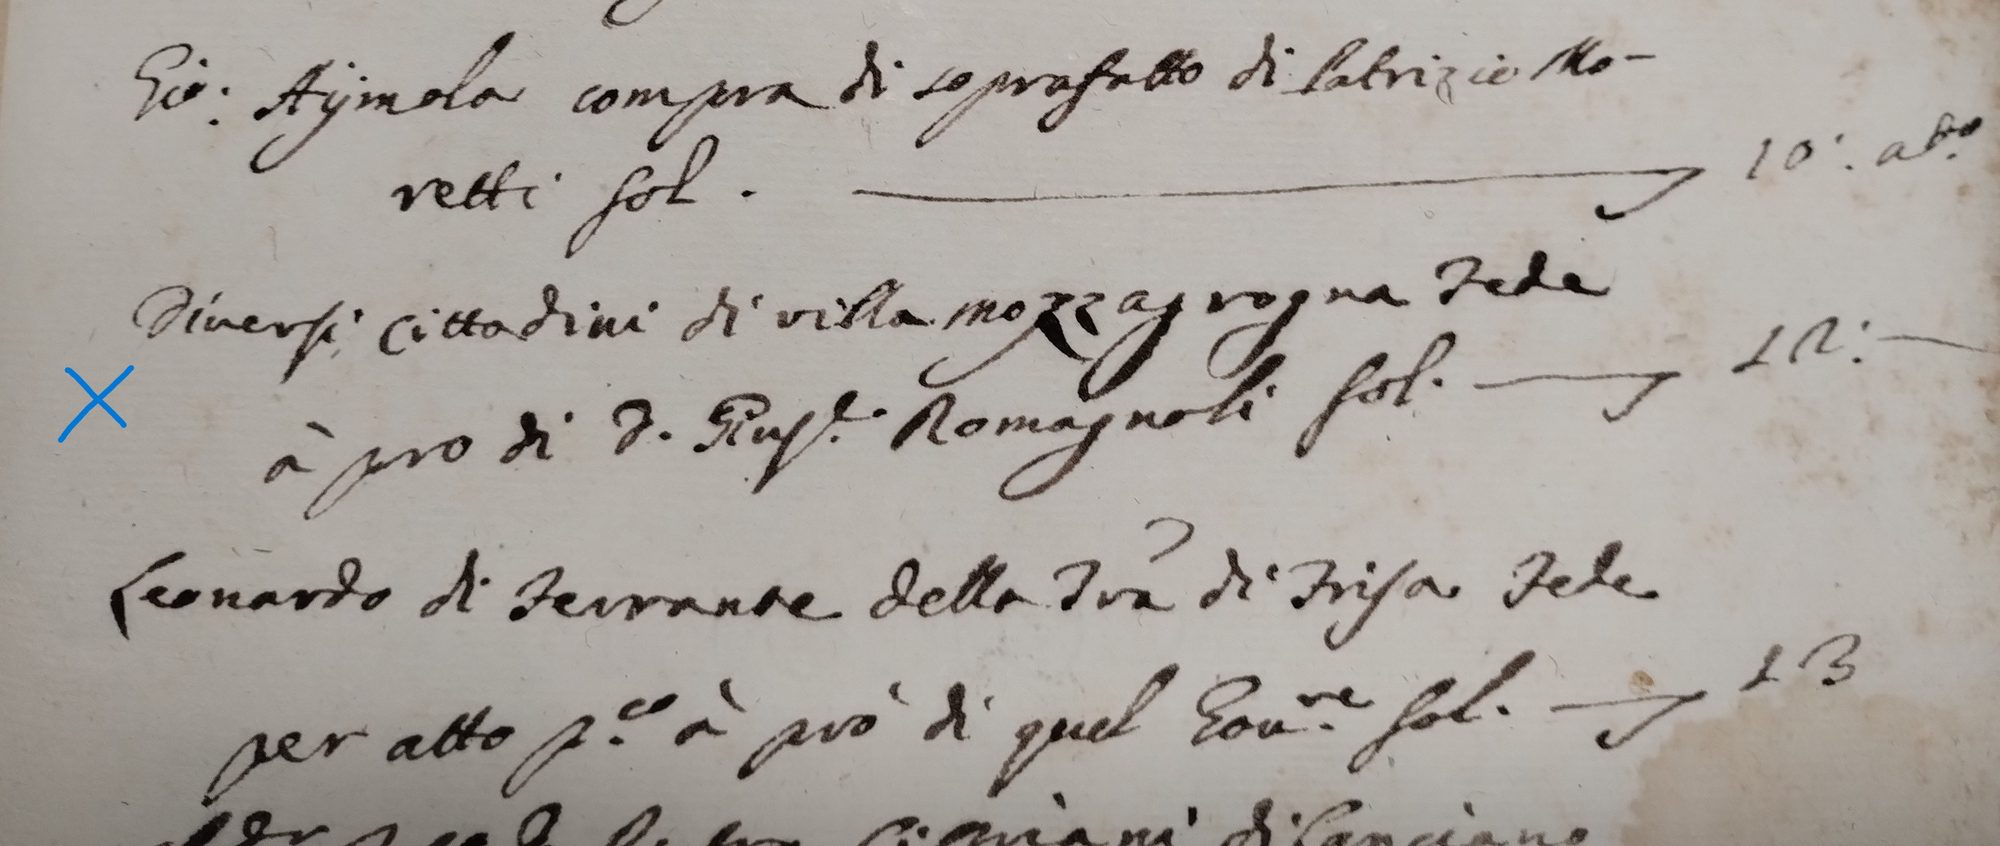 Gio: Aÿmola compra di soprafatto di Patrizio Mo-
retti fol. 10: at.º
Diversi Cittadini di villa mozzagrogna Fede
à pro di D. Giusp.e Romagnoli fol. 12:
Leonardo di Ferrante della Trà di Frisa Fede
per atto p.co à prò di quel Gov.re fol. 13
di Lanciano